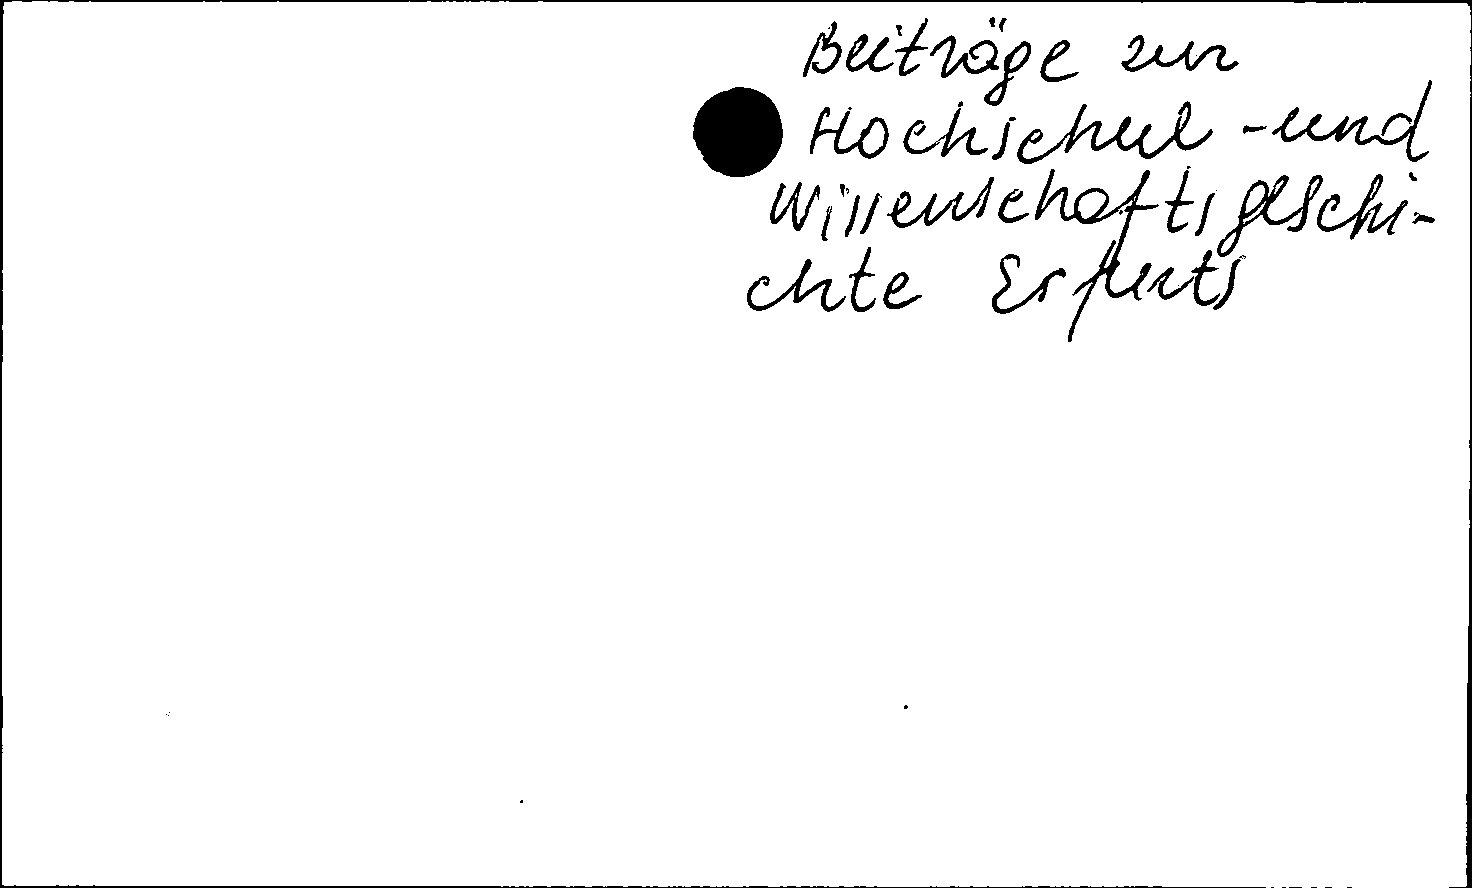 Beiträge zur
Hochschul -und
Wissenschaftsgeschi-
chte Erfurts